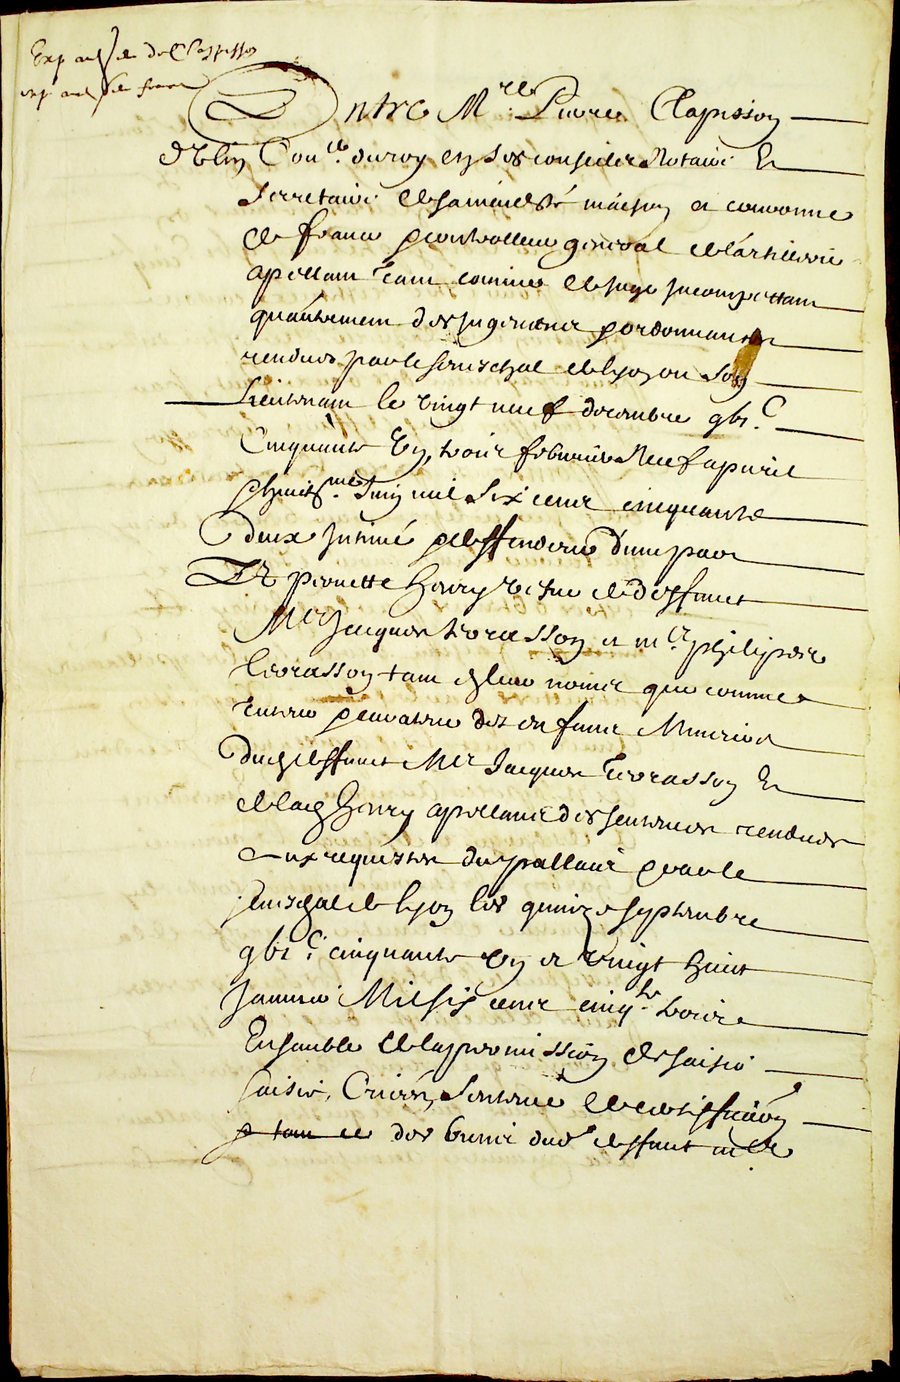 Exp aud Sr de Clapisson
exp aud Sr de
Entre Mre Pierre Clapisson
d'Ulin Coner du roy en ses conseilz Notaire Et
Secretaire de sa maiesté maison et couronne
de france & controlleur general de l'artillerie
apellant tant comme de juge incompettant
qu'autrement des jugemens & ordonnances
rendues par le seneschal de lyon ou son
Lieutenant le vingt neuf decembre gbic
Cinquante Un, trois febvrier Neuf apvril
& huictme Juin mil six cens cinquante
deux Intimé & deffendeur d'une part
Et pernette henry vefve de deffunct
Mre Jacques terrasson et Mre philipes
terrasson tant en leur noms que comme
tuteur & curatrice des enfans Mineurs
dud deffunct Mre Jacques terrasson Et
de lad henry apellans des sentences rendues
aux requestes du pallais & par le
seneschal de lyon les quinze septembre
gbic cinquante un et vingt huict
Janvier Mil six cens cinqte trois
Ensemble de la permission de saisir
saisie, Criées, Sentence de certiffication
& tout ce des biens dud deffunct mre